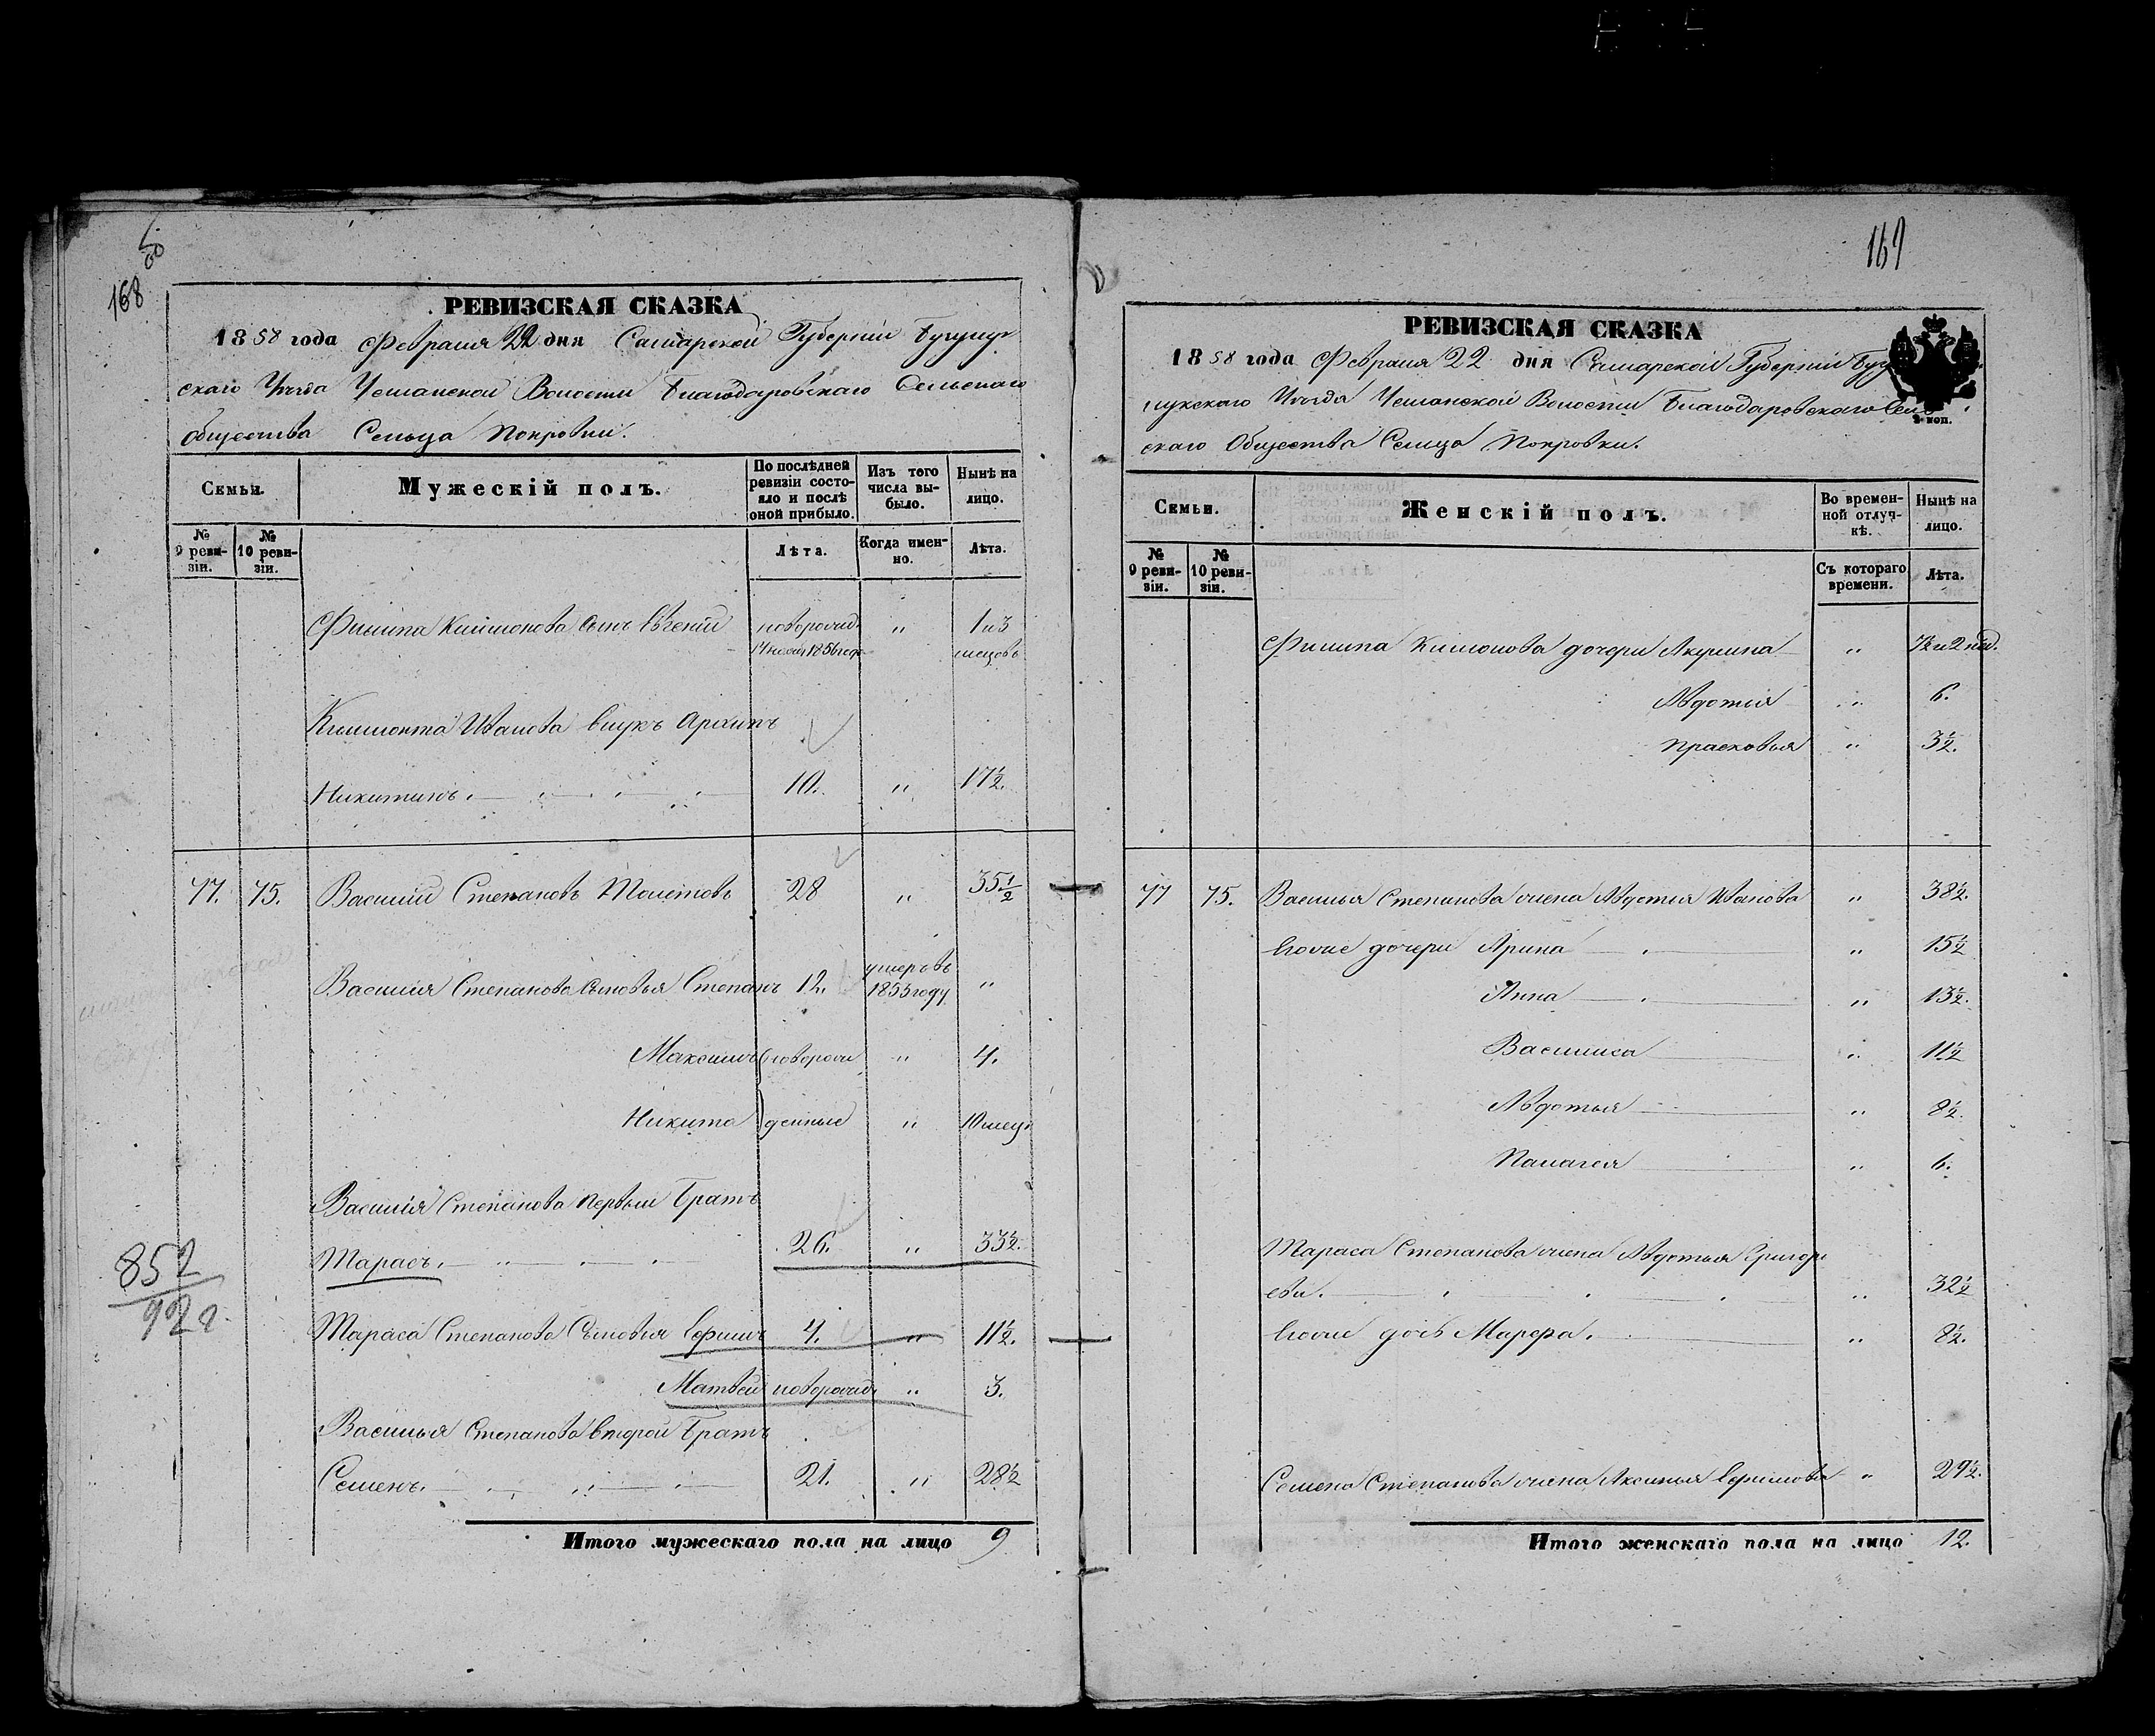 168
РЕВИЗСКАЯ СКАЗКА
1858 года Февраля 22 дня Самарской Губернии Бугурус
скаго Уѣзда Волости Благодаровскаго Сельскаго
Общества Сельца Покровки.
Семьи.
Мужескій полъ.
По послѣдней ревизіи состояло и послѣ оной прибыло.
Изъ того числа выбыло.
Нынѣ на лицо.
№ 9 ревизіи.
№ 10 ревизіи.
Лѣта.
Когда именно.
Лѣта.
Филипа Климонова сынъ Евгений новорожд. " 1 и 3
1856 года месцовъ
Климонта Иванова внукъ Архипъ
Никитинъ. 10. " 17½.
77. 75. Василий Степановъ 28 " 35½
Василия Степанова сыновья Степанъ 12. умеръ въ 1853 году "
Максимъ новорож " 4.
Никита денные " 10 месц
Василия Степанова первый Братъ
Тарасъ. 26. " 33½.
Тараса Степанова Сыновья Ефимъ 4. " 11½.
Матвей новорожд. " 3.
Василья Степанова второй Братъ
Семенъ. 21. " 28½
Итого мужескаго пола на лицо 9
852
922
169
РЕВИЗСКАЯ СКАЗКА
1858 года Февраля 22 дня Самарской Губернии
Уѣзда Волости Благодаровскаго Сель
скаго Общества Селица Покровки.
коп.
Семьи.
Женскій полъ.
Во временной отлучкѣ.
Нынѣ на лицо.
№ 9 ревизіи.
№ 10 ревизіи.
Съ котораго времени.
Лѣта.
Филипа Климонова дочери Акулина "
Авдотья " 6.
Прасковья " 3½.
77 75. Василья Степанова жена Авдотья Иванова " 38½.
Евоние дочери Арина " 15½
Анна " 13½.
Василиса " 11½
Авдотья " 8½.
Палагея " 6.
Тараса Степанова жена Авдотья Григорь
ева. " 32½
дочь Марфа. " 8½.
Семена Степанова жена Аксинья Ефимова " 29½.
Итого женскаго пола на лицо 12.